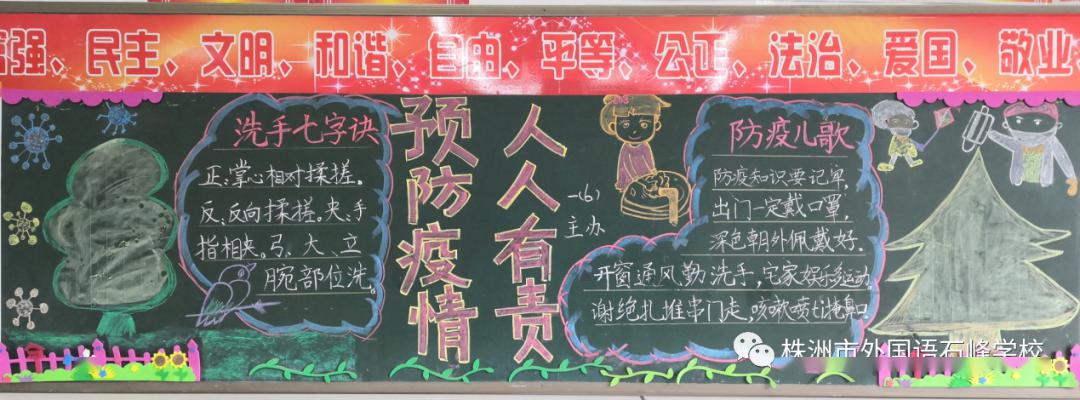 富强、民主、文明、和谐、自由、平等、公正、法治、爱国、敬业、
洗手七字诀
正:掌心相对揉搓。
反、反向揉搓。夹、手
指相夹。弓、大、立
腕部位洗。
预防疫情
人人有责
一(6)
主办
防疫儿歌
防疫知识要记牢,
出门一定戴口罩,
深色朝外佩戴好.
开窗通风勤洗手,宅家娱乐多运动
谢绝扎堆串门走,咳嗽喷嚏掩鼻口
株洲市外国语石峰学校